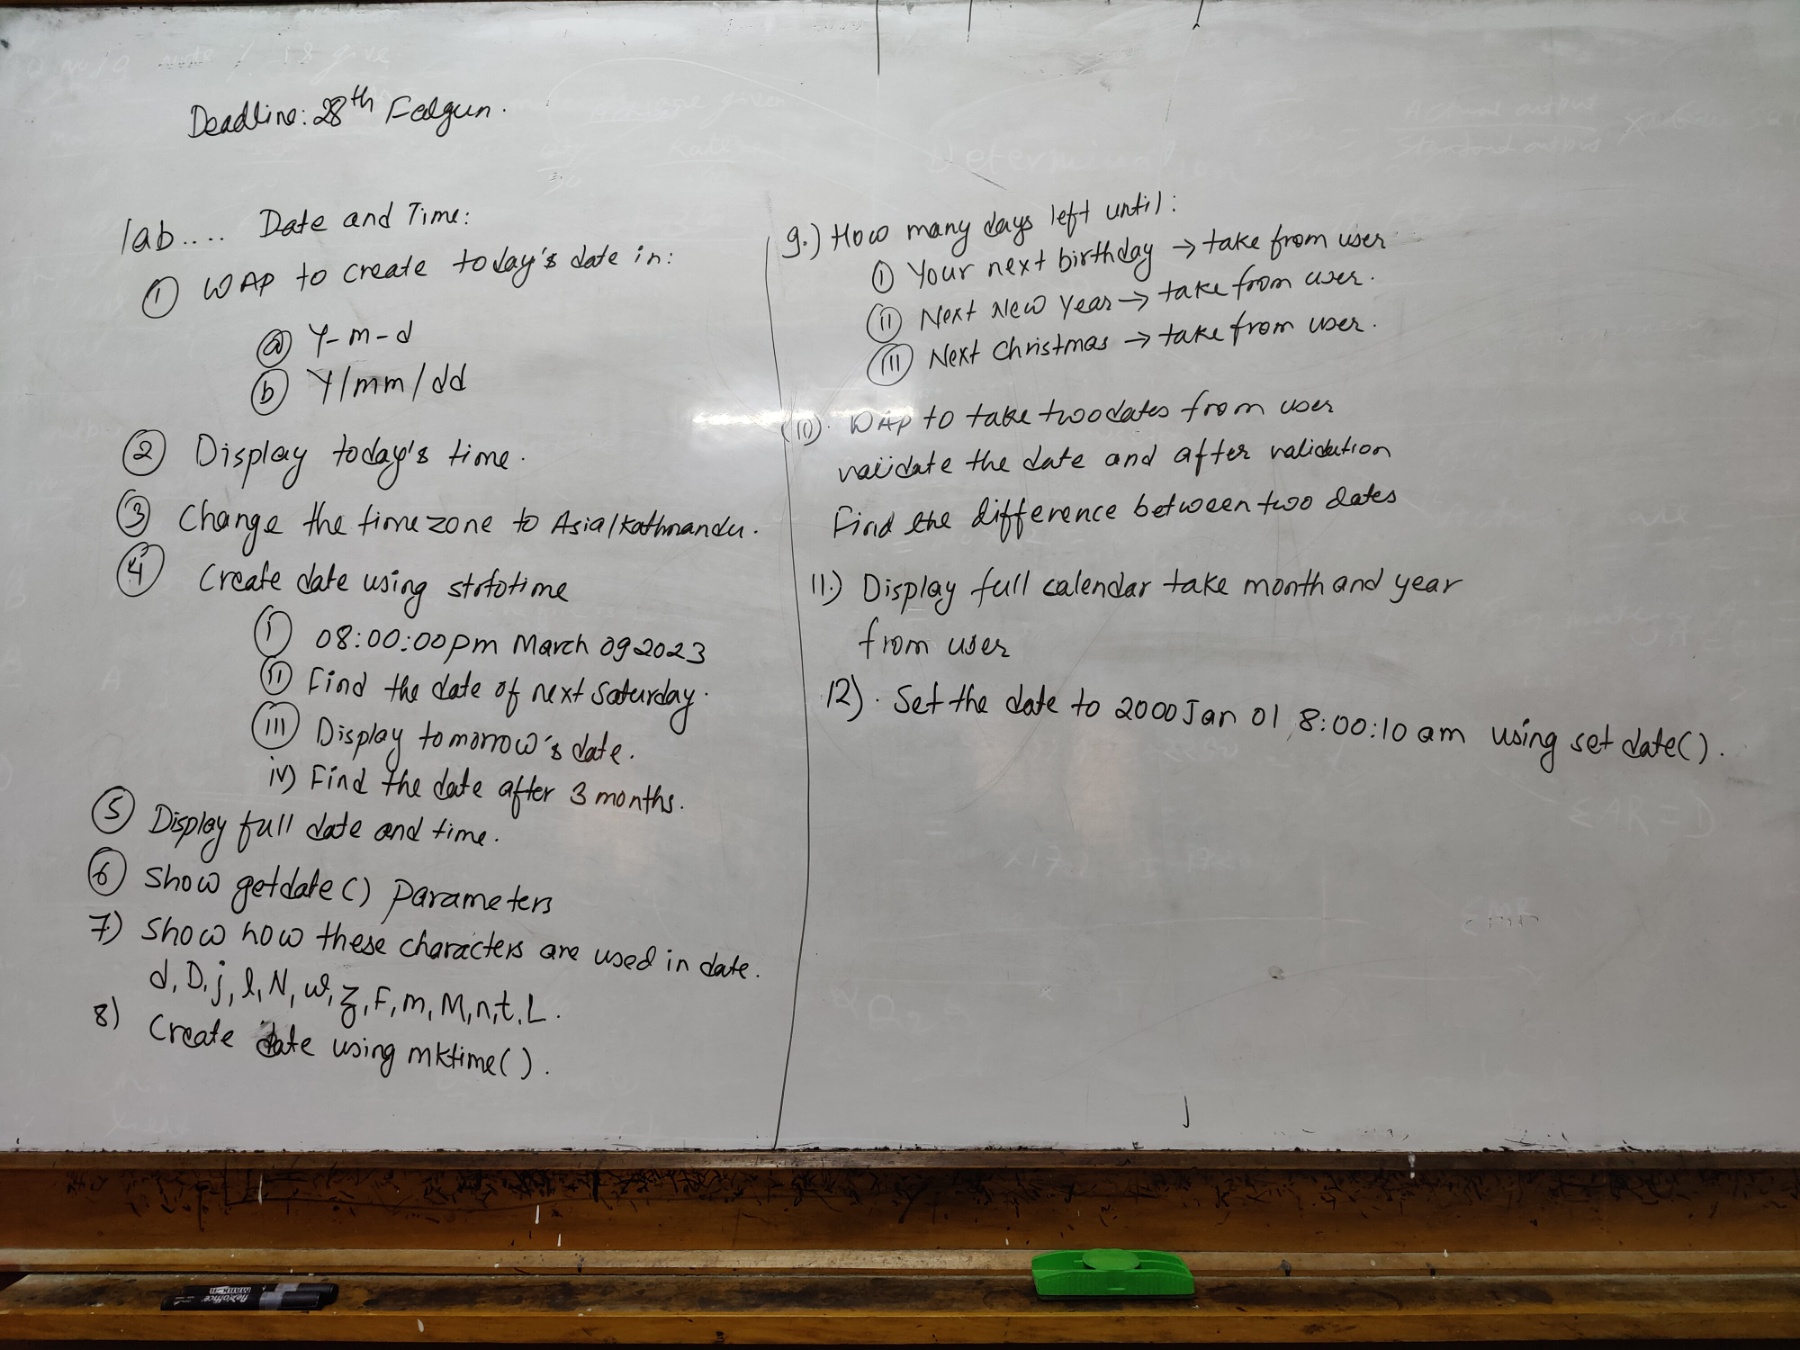 Deadline: 28th Falgun.
lab.... Date and Time:
① WAP to create today's date in:
ⓐ Y-m-d
ⓑ Y/mm/dd
② Display today's time.
③ Change the timezone to Asia/Kathmandu.
④ Create date using strtotime
ⓘ 08:00:00pm March 09 2023
ⓘⓘ Find the date of next Saturday.
ⓘⓘⓘ Display tomorrow's date.
iv) Find the date after 3 months.
⑤ Display full date and time.
⑥ Show getdate() parameters
7) Show how these characters are used in date.
d, D, j, l, N, w, z, F, m, M, n, t, L.
8) Create date using mktime().
9.) How many days left until:
ⓘ Your next birthday → take from user
ⓘⓘ Next New Year → take from user.
ⓘⓘⓘ Next Christmas → take from user.
(10). WAP to take two dates from user
validate the date and after validation
Find the difference between two dates
11.) Display full calendar take month and year
from user
12). Set the date to 2000 Jan 01 8:00:10 am using setdate().